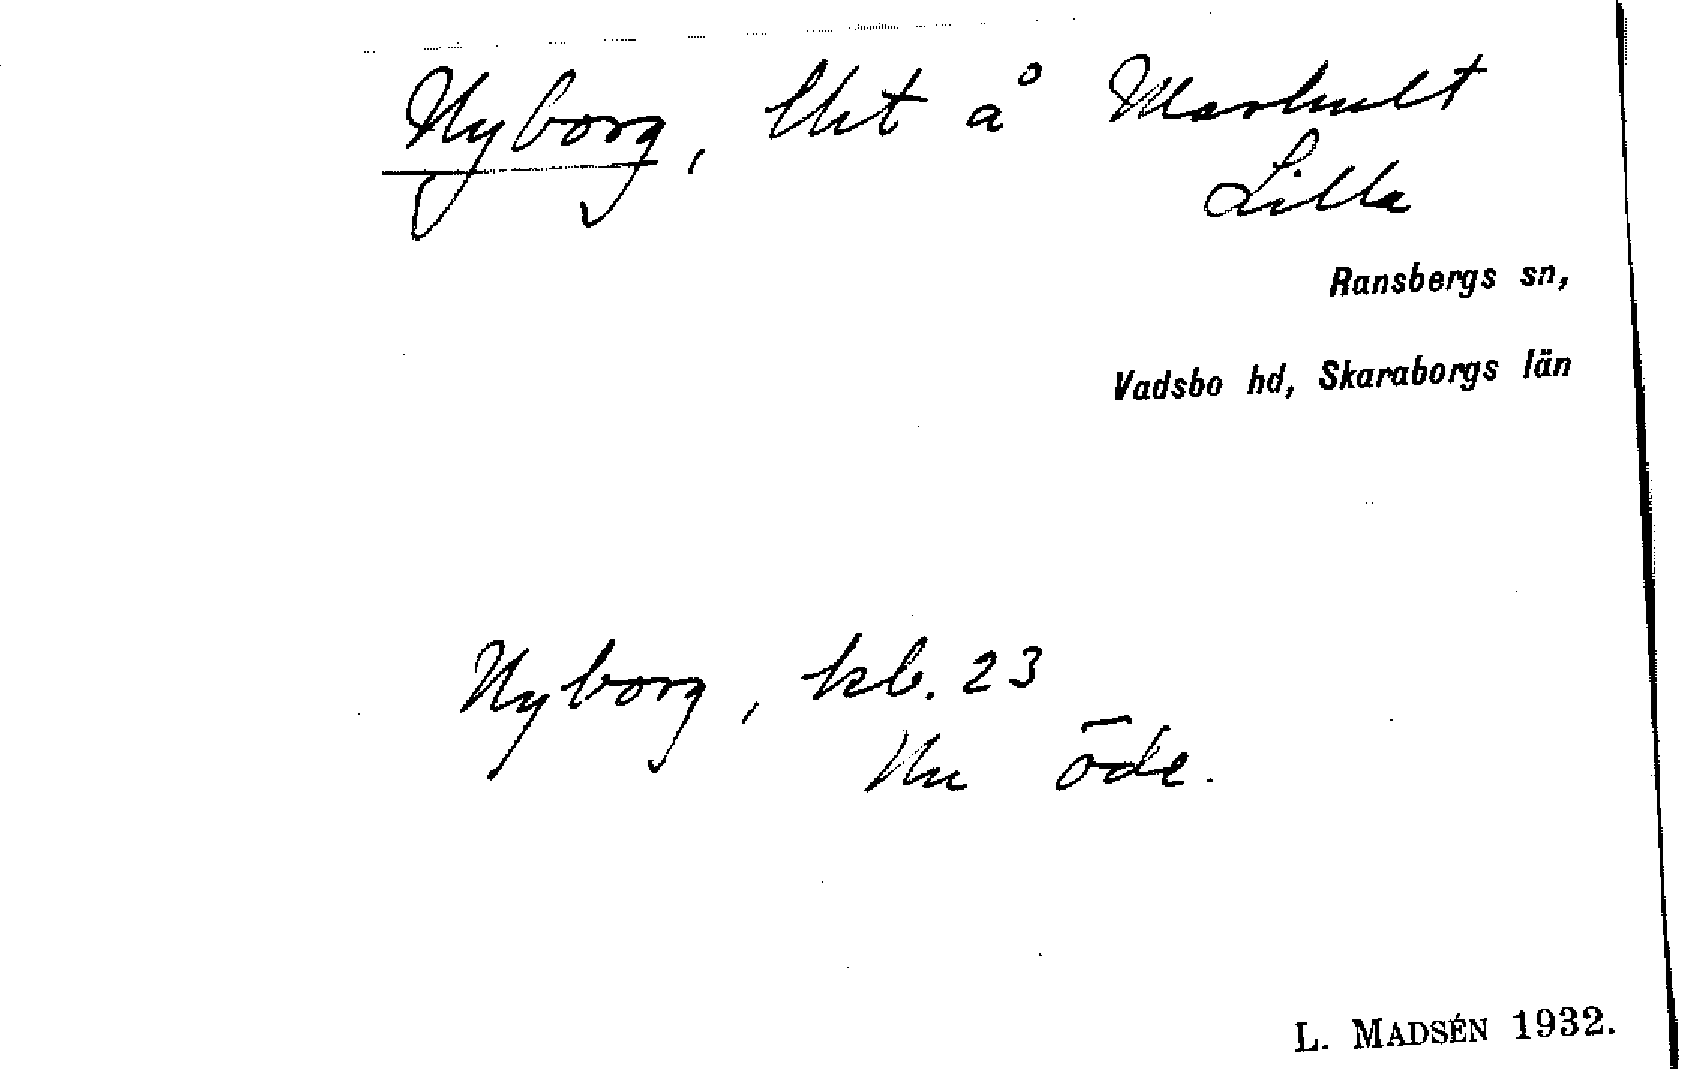 Nyborg, lht å Marhult
Lilla
Ransbergs sn,
Vadsbo hd, Skaraborgs län
Nyborg, kb. 23
Nu öde.
L. MADSÉN 1932.